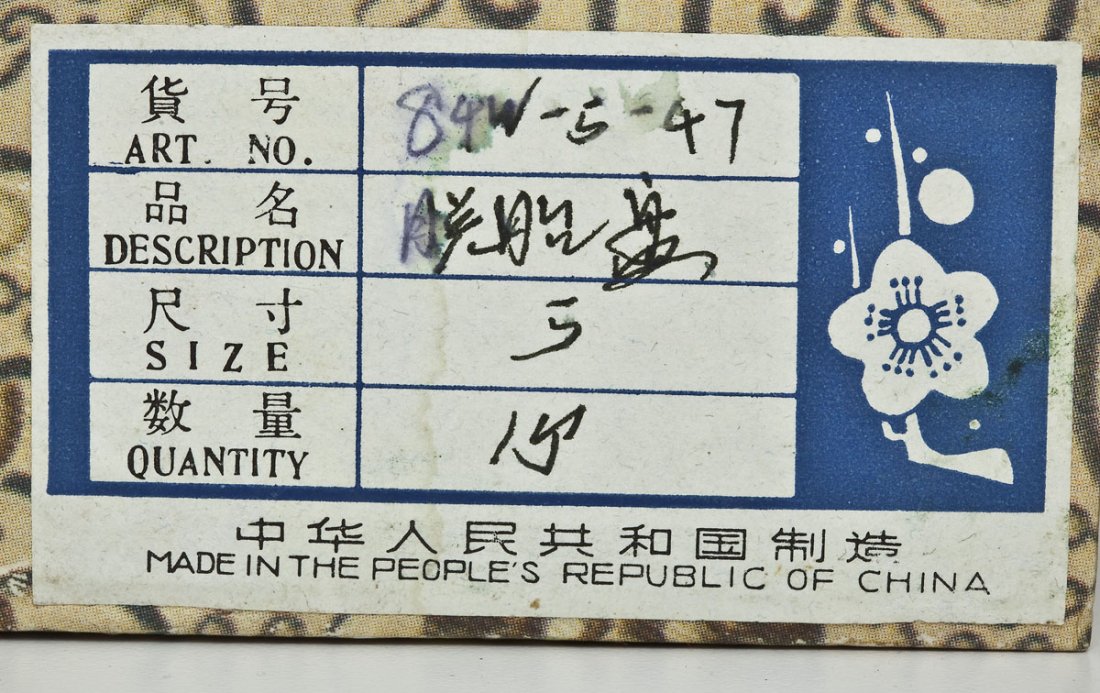 貨号 84W-5-47
ART. NO.
品名 脱胎盘
DESCRIPTION
尺寸 5
SIZE
数量
QUANTITY
中华人民共和国制造
MADE IN THE PEOPLE'S REPUBLIC OF CHINA